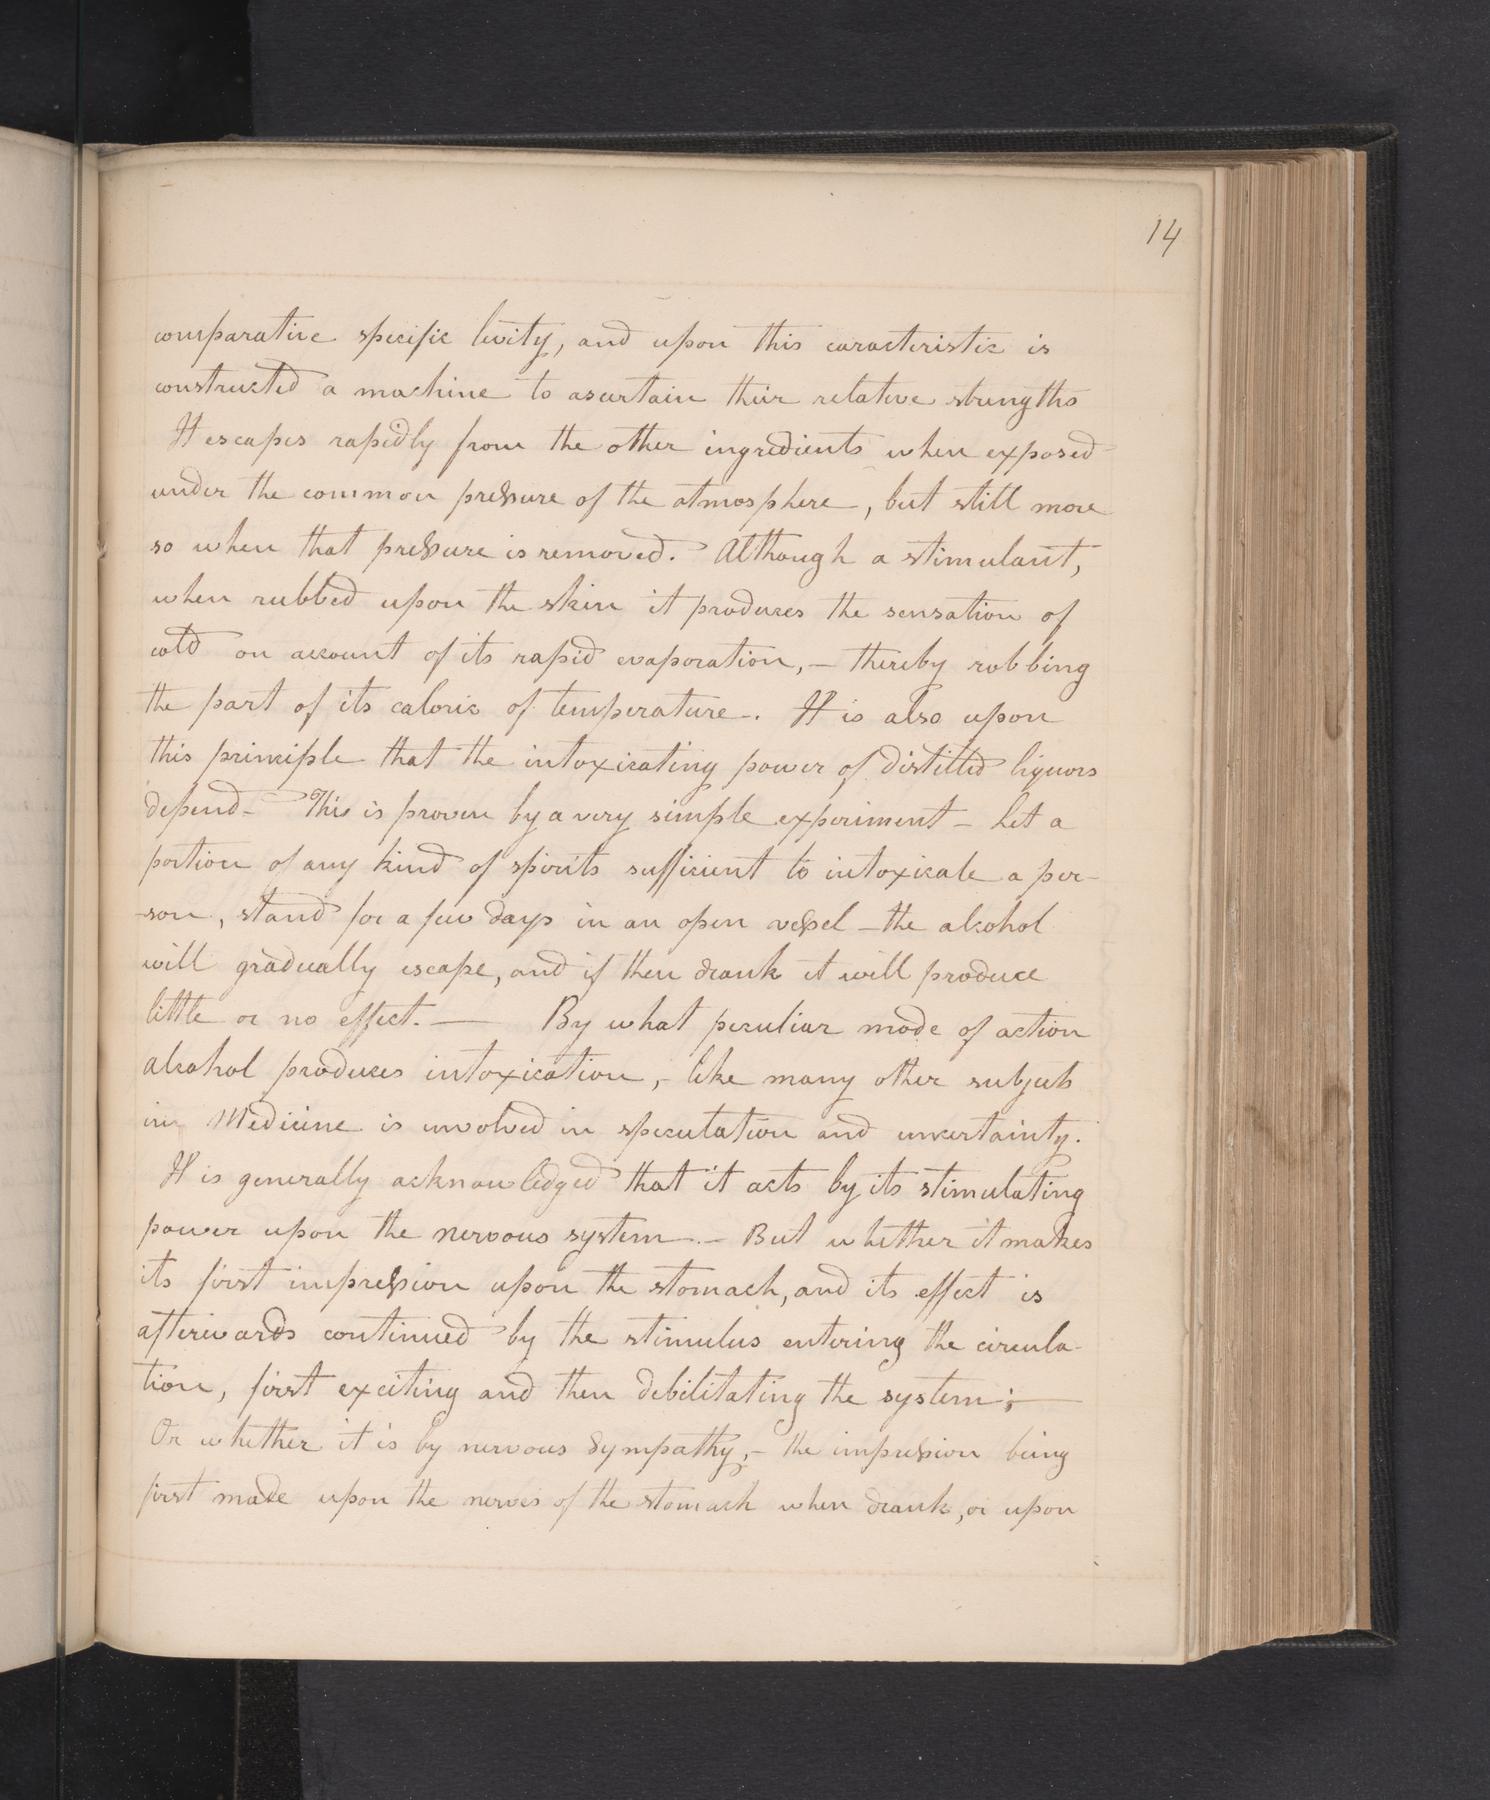 14
comparative specific levity, and upon this caracteristic is
constructed a machine to asertain their relative strengths
It escapes rapidly from the other ingredients when exposed
under the common pressure of the atmosphere, but still more
so when that pressure is removed. Although a stimulant,
when rubbed upon the skin it produces the sensation of
cold on account of its rapid evaporation, – thereby robbing
the part of its caloric of temperature. It is also upon
this principle that the intoxicating power of distilled liquors
depend – This is proven by a very simple experiment – Let a
portion of any kind of spirits sufficient to intoxicate a per-
-son, stand for a few days in an open vessel – the alcohol
will gradually escape, and if then drank it will produce
little or no effect. — By what peculiar mode of action
alcohol produces intoxication, – like many other subjects
in Medicine is involved in speculation and uncertainty.
It is generally acknowledged that it acts by its stimulating
power upon the nervous system – But whether it makes
its first impression upon the stomach, and its effect is
afterwards continued by the stimulus entering the circula-
tion, first exciting and then debilitating the system; —
Or whether it is by nervous Sympathy, – the impression being
first made upon the nerves of the stomach when drank, or upon